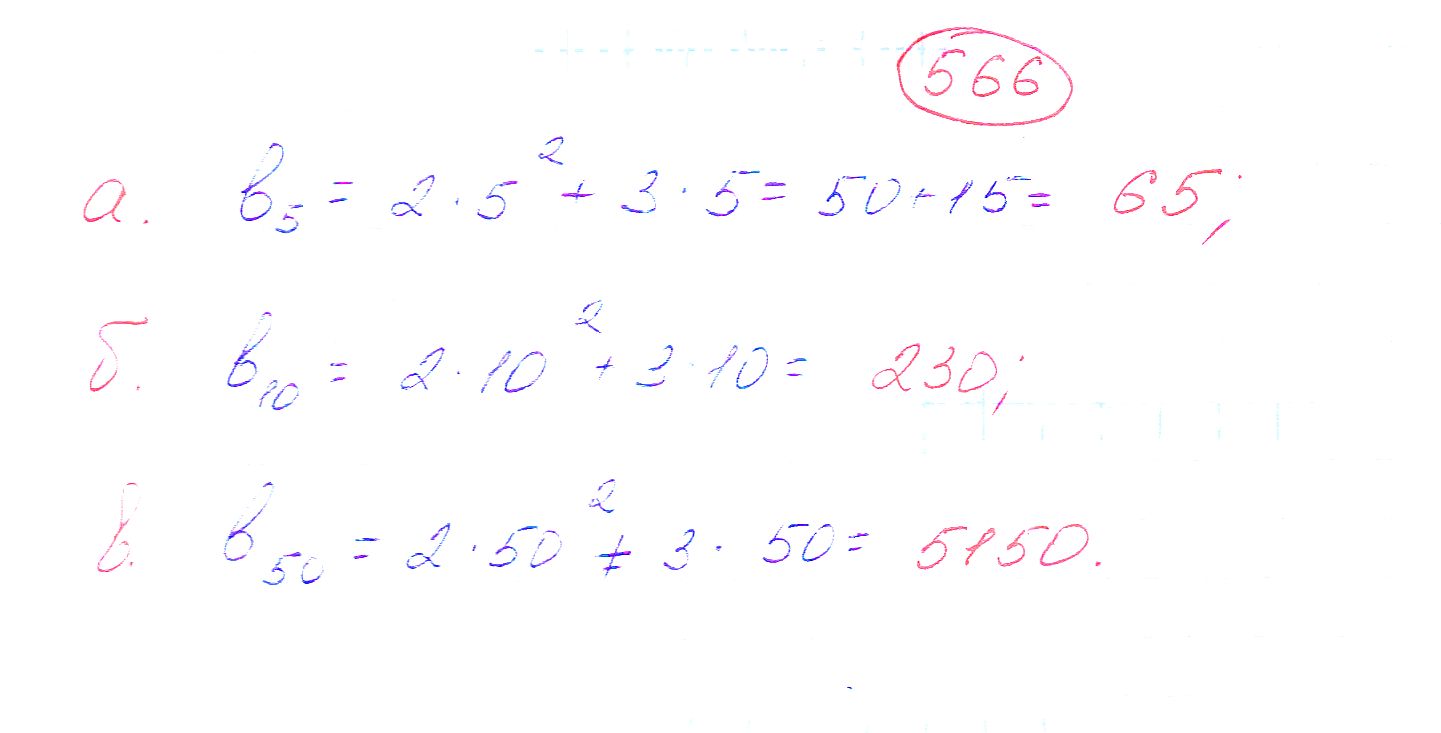 566
а. b₅ = 2 · 5² + 3 · 5 = 50 + 15 = 65;
б. b₁₀ = 2 · 10² + 3 · 10 = 230;
в. b₅₀ = 2 · 50² + 3 · 50 = 5150.